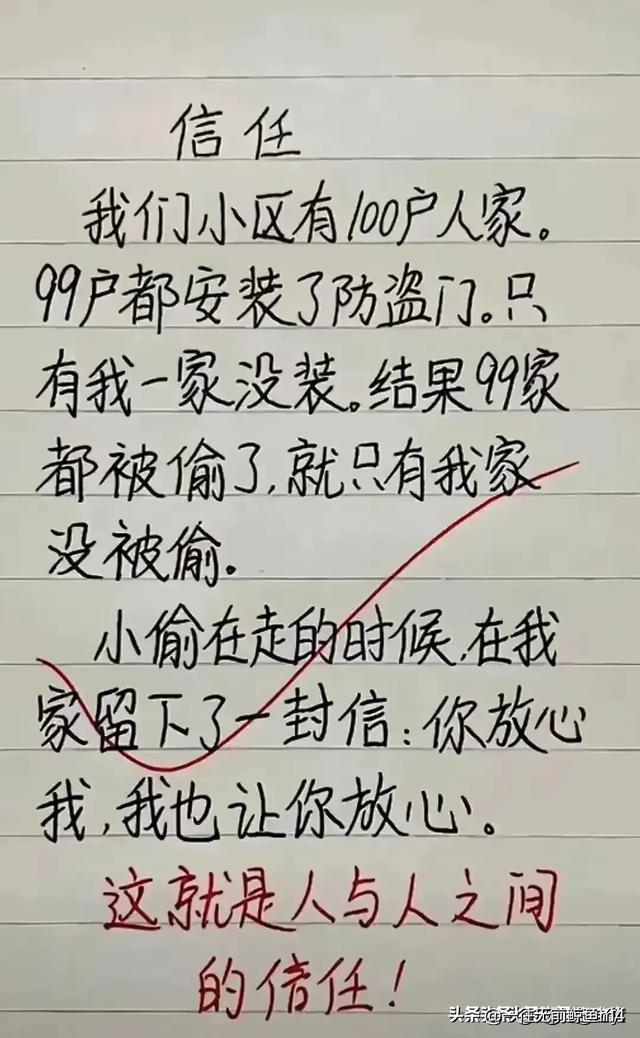 信任
我们小区有100户人家。
99户都安装了防盗门。只
有我一家没装。结果99家
都被偷了,就只有我家
没被偷.
小偷在走的时候,在我
家留下了一封信:你放心
我,我也让你放心。
这就是人与人之间
的信任!